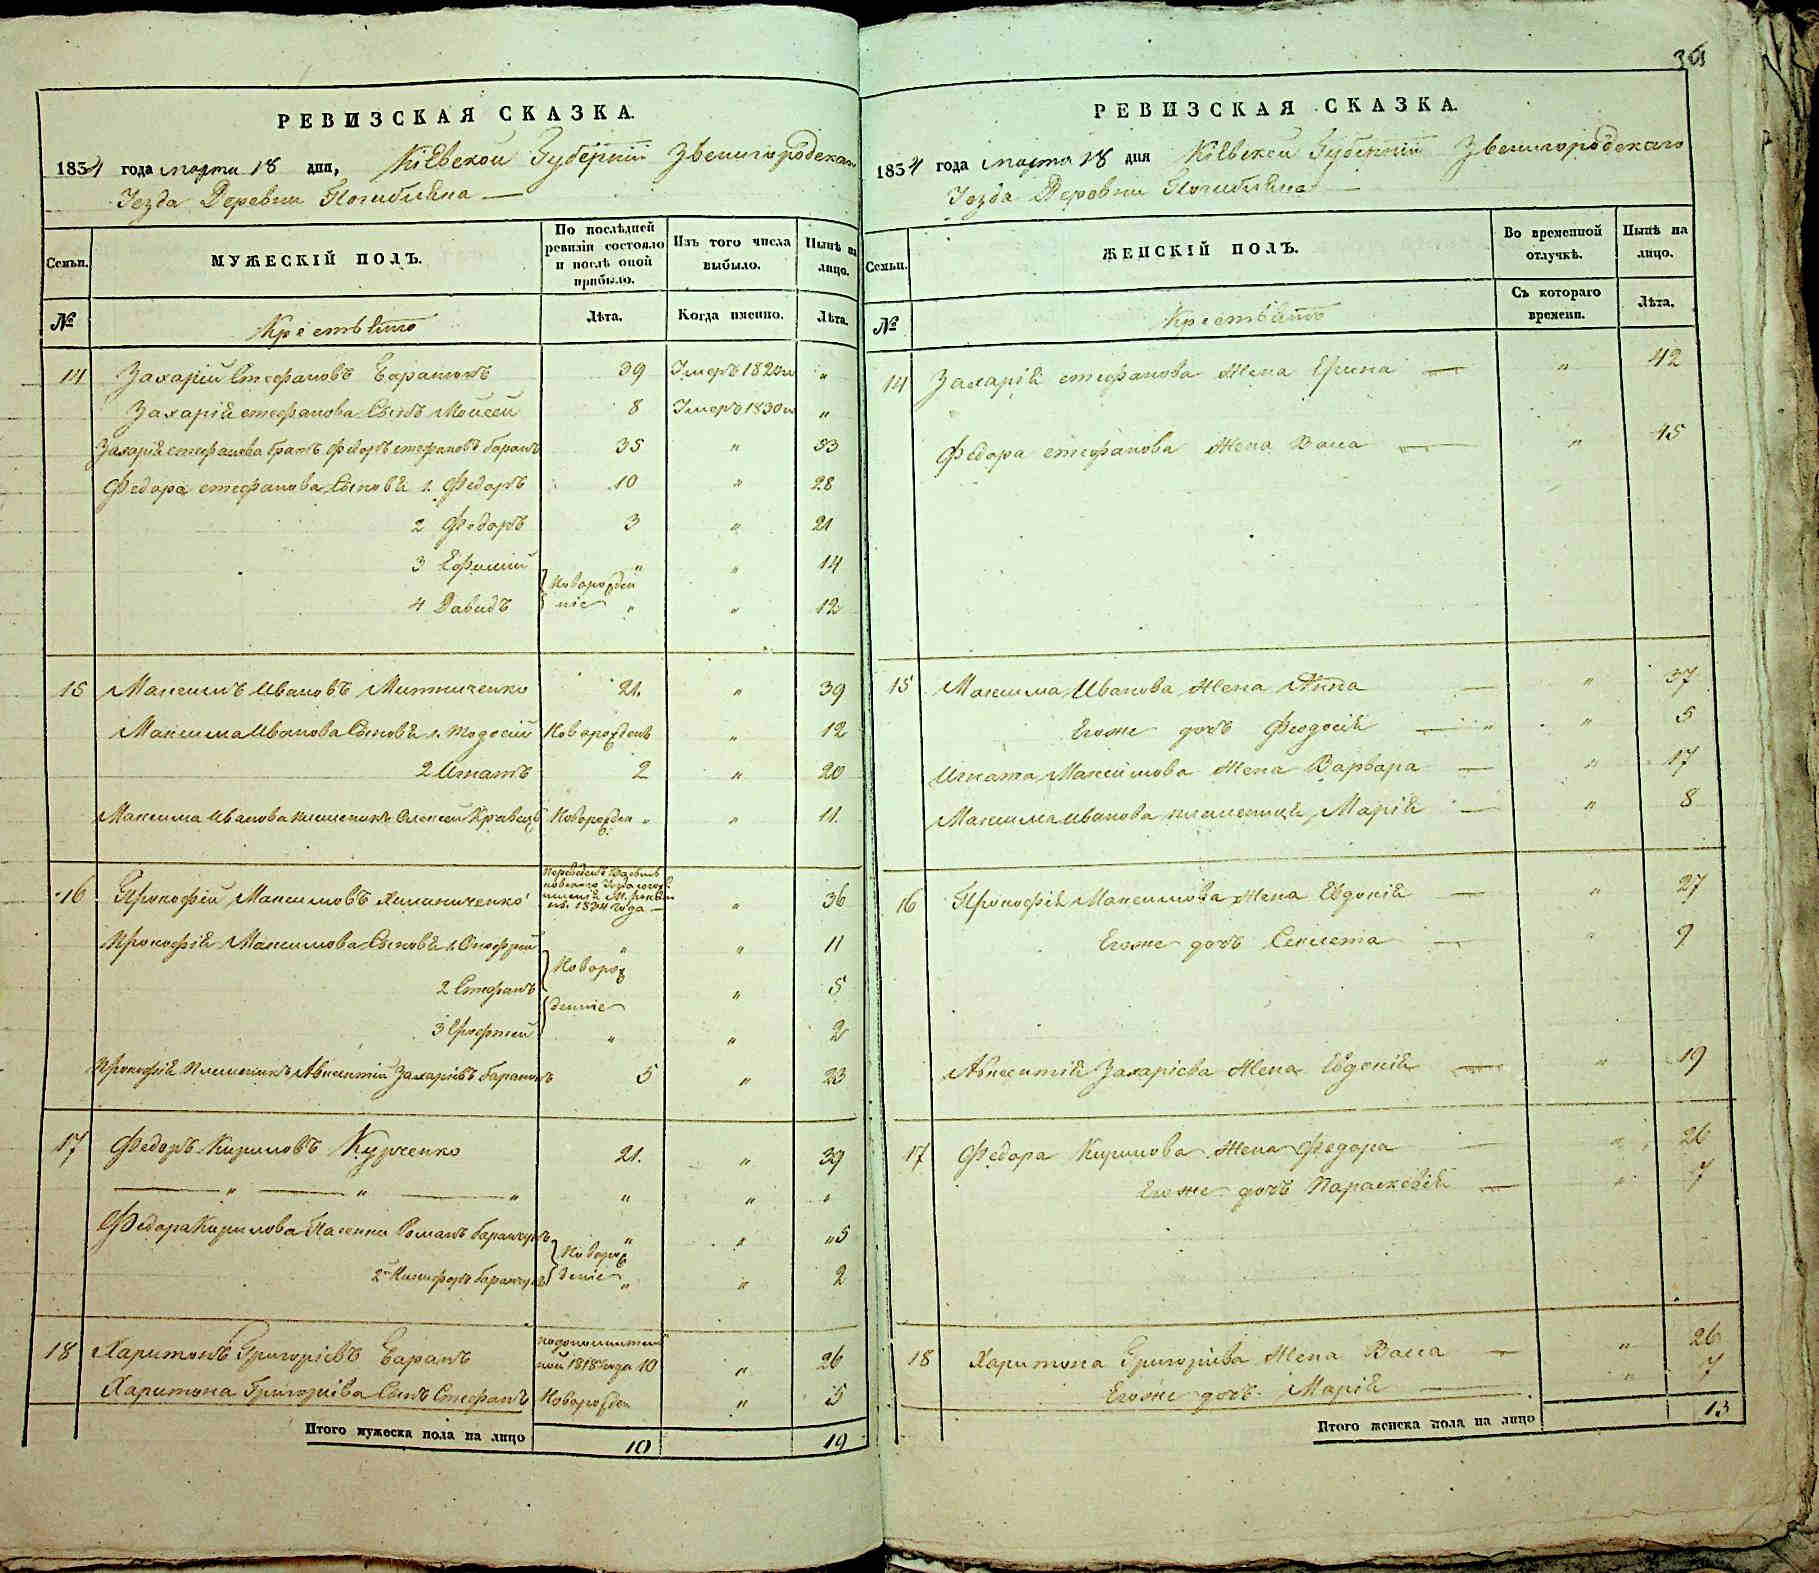 36
РЕВИЗСКАЯ СКАЗКА.
1834 года марта 18 дня, Кіевской Губерніи Звенигородскаго
Уезда Деревни Погибляка
Семьи. МУЖЕСКІЙ ПОЛЪ. По послѣдней ревизіи состояло и послѣ оной прибыло. Изъ того числа выбыло. Нынѣ на лицо.
№ Крестьянъ Лѣта. Когда именно. Лѣта.
14 Захарій Стефановъ Баранюкъ 39 Умеръ 1824 „
Захарія стефанова Сынъ Моисей 8 Умеръ 1830 „
Захарія стефанова братъ Федоръ стефановъ Баранъ 35 „ 53
Федора стефанова Сыновя 1. Федоръ 10 „ 28
2 Федоръ 3 „ 21
3 Ефимій „ „ 14
Новорожден
ніе
4 Давидъ „ „ 12
15 Максимъ Ивановъ Митниченко 21. „ 39
Максима Иванова Сыновя 1. Тодосій Новорожденъ „ 12
2 Игнатъ 2 „ 20
Максима Иванова племенникъ Олексей Кравецъ Новорожден „ „ 11.
16 Прокофій Максимовъ 1834 года „ 36
Прокофія Максимова Сыновя 1. Онофрій „ „ 11
Новорож
2 Стефанъ „ 5
денніе
3 „ „ 2
Прокофія Племенникъ Авксентій Захаріевъ Баранюкъ 5 „ 23
17 Федоръ Кириловъ Курченко 21. „ 39
„ „ „ „ „ „
Федора Кирилова Пасенки Романъ „ „ „5
Новорож
дение
2 Никифоръ „ „ 2
18 Харитонъ Григоріевъ Баранъ по дополнитель
ной 1818 года 10 „ 26
Харитона Григоріева Сынъ Стефанъ Новорожден „ 5
Итого мужеска пола на лицо 10 19
РЕВИЗСКАЯ СКАЗКА.
1834 года марта 18 дня Кіевской Губерніи Звенигородскаго
Уезда Деревни Погибляка
Семьи. ЖЕНСКІЙ ПОЛЪ. Во временной отлучкѣ. Нынѣ на лицо.
№ Крестьянъ Съ котораго времени. Лѣта.
14 Захарія стефанова жена Ирина „ 42
Федора стефанова жена Васа „ 45
15 Максима Иванова жена Анна „ 37
Егоже дочь Феодосія „ 5
Игната Максимова жена Варвара „ 17
Максима Иванова племеница Марія „ 8
16 Прокофія Максимова жена Евдокія „ 27
Егоже дочь „ 9
Авксентія Захаріева жена Евдокія „ 19
17 Федора Кирилова жена Федора „ 26
Егоже дочь Параскевія „ 7
18 Харитона Григоріева жена Васа „ 26
Егоже дочь Марія „ 7
Итого женска пола на лицо 13